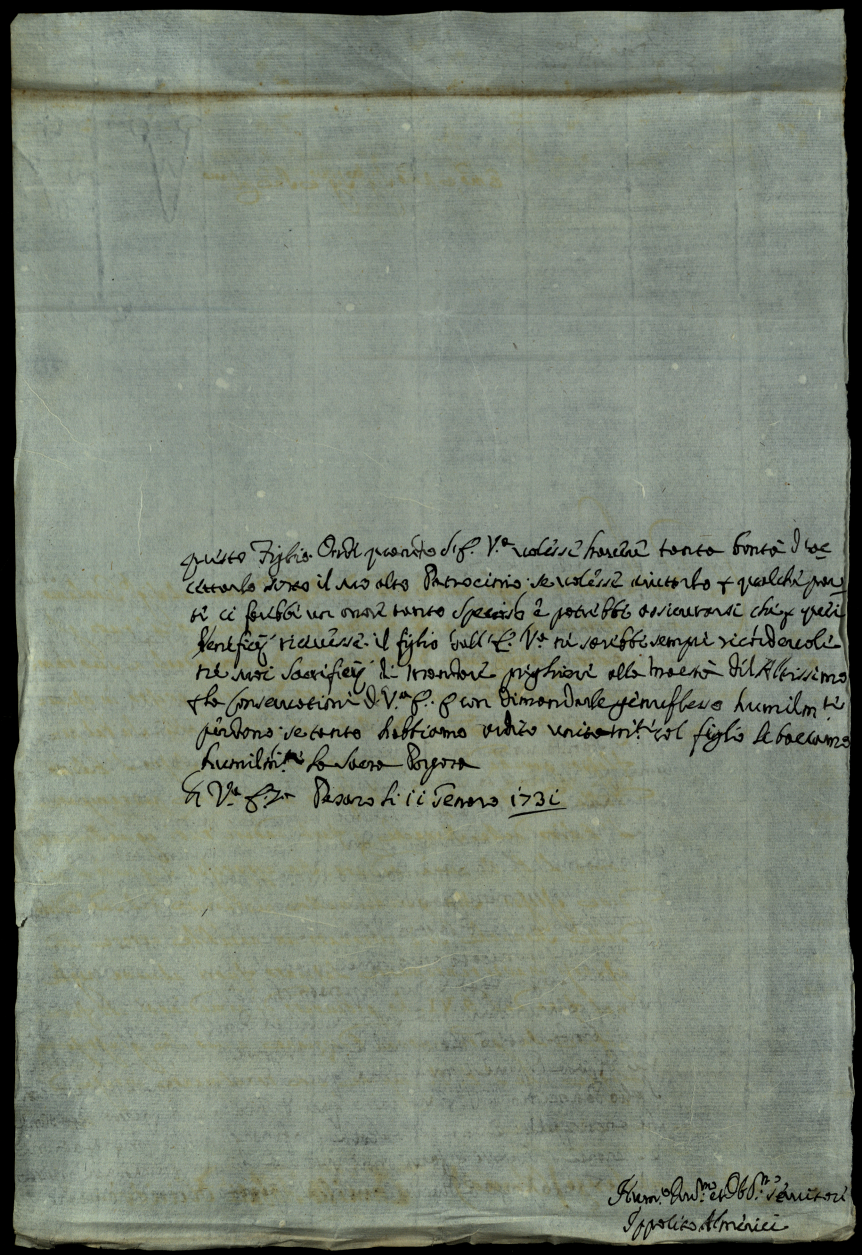 questo Figlio. Onde quando S. E. V.ª volesse havere tanta bontà d'ac=
cettarlo sotto il suo alto Patrocinio se volesse aiutarlo
ci sarebbe un onore tanto e potrebbe assicurarsi che
Beneficij ricevesse il figlio dall'E. V.ª ne sarebbe sempre ricordevole
ne suoi Sacrificij di mandare preghiere alla Maestà dell'Altissimo
la Conservatione di V.ª E. e con dimandarle genuflesso humilm.te
perdono se tanto habbiamo ardito unitam.te col figlio le baciamo
humilm.te la Sacra Porpora
Di V.ª E.za Pesaro li 11 Genaro 1731
Hum.o Dev.mo et Obb.mo Servitore
Ippolito Almerici